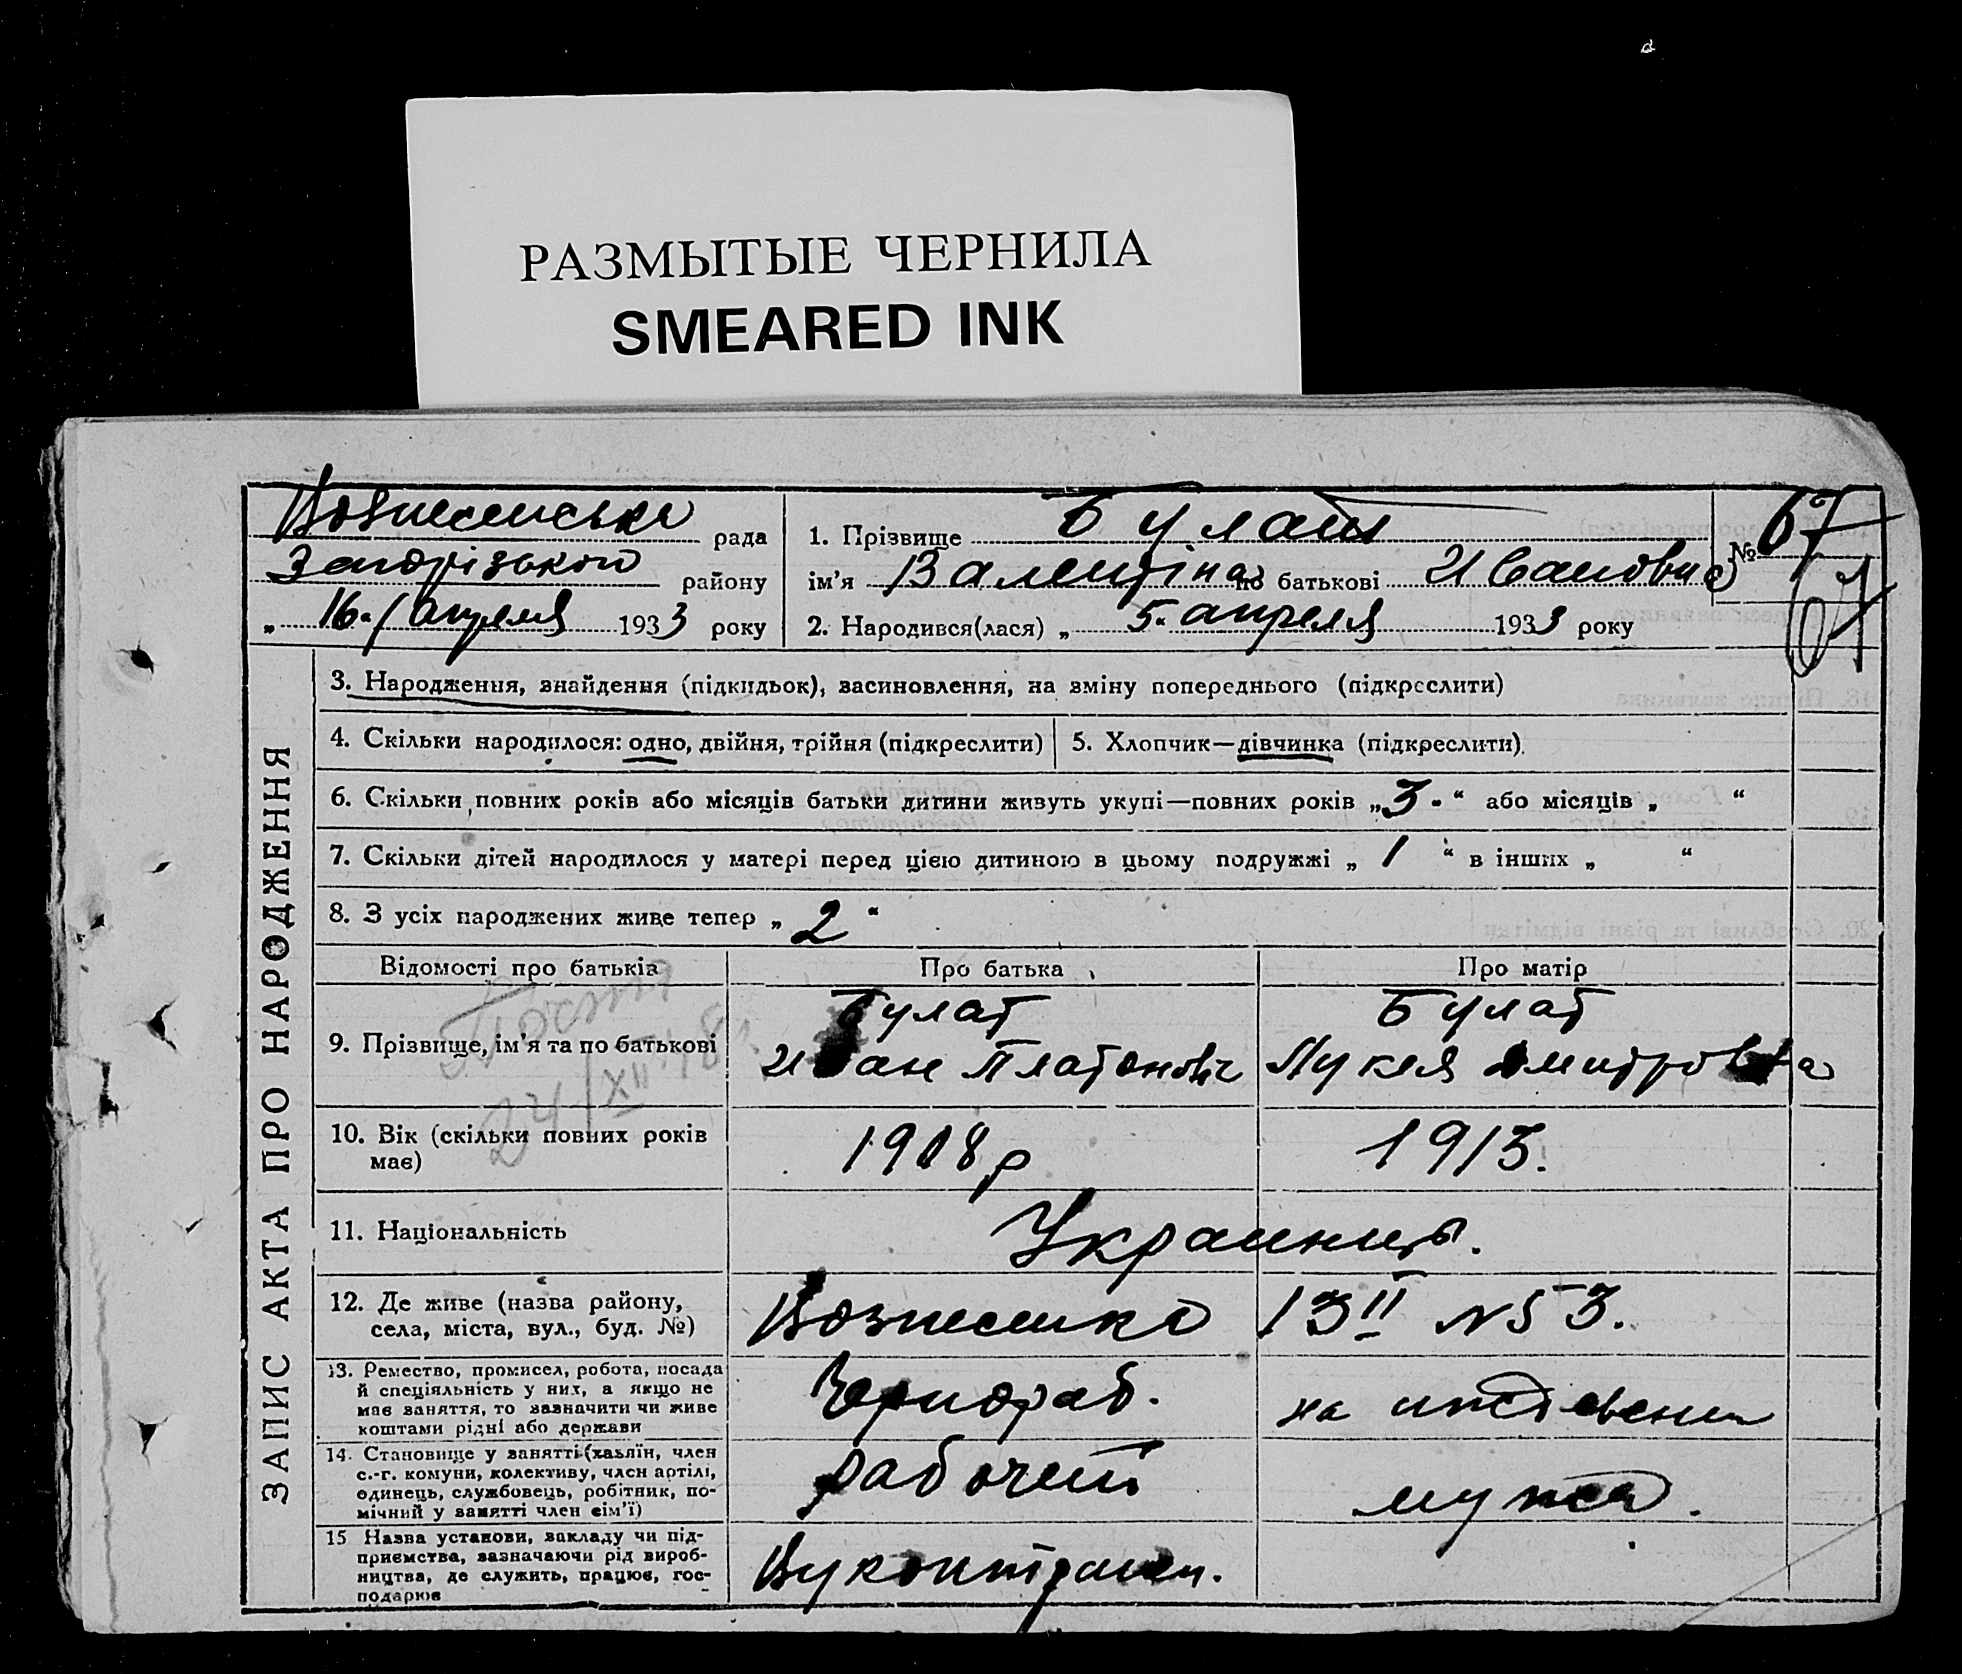 РАЗМЫТЫЕ ЧЕРНИЛА
SMEARED INK
Вознесенська рада
Запорізького району
„ 16./ апреля 1933 року
1. Прізвище Булат
ім’я Валентіна по батькові Ивановна
2. Народився(лася) „ 5. апреля 1933 року
№ 67
61
ЗАПИС АКТА ПРО НАРОДЖЕННЯ
3. Народження, знайдення (підкидьок), засиновлення, на зміну попереднього (підкреслити)
4. Скільки народилося: одно, двійня, трійня (підкреслити)
5. Хлопчик—дівчинка (підкреслити).
6. Скільки повних років або місяців батьки дитини живуть укупі—повних років „3.“ або місяців „ “
7. Скільки дітей народилося у матері перед цією дитиною в цьому подружжі „ 1 “ в інших „ “
8. З усіх народжених живе тепер „ 2 “
Відомості про батьків
Про батька
Про матір
9. Прізвище, ім’я та по батькові
Булат
Иван Платонович
Булат
Лукея Дмитровна
24/XII
10. Вік (скільки повних років
має)
1908 р
1913.
11. Національність
Украинцы.
12. Де живе (назва району,
села, міста, вул., буд. №)
Вознесенка 13 II N 53.
13. Ремество, промисел, робота, посада
й спеціяльність у них, а якщо не
має заняття, то зазначити чи живе
коштами рідні або держави
Чернораб.
на иждевении
14. Становище у занятті (хазяїн, член
с.-г. комуни, колективу, член артілі,
одинець, службовець, робітник, по-
мічний у занятті член сім’ї)
рабочий
мужа.
15 Назва установи, закладу чи під-
приємства, зазначаючи рід вироб-
ництва, де служить, працює, гос-
подарює